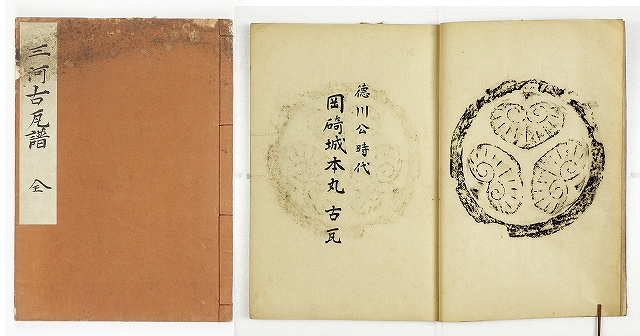 三河古瓦譜 全
徳川公時代
岡碕城本丸 古瓦